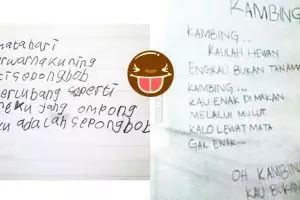 matahari
erwarna kuning
tisepongbob
erlubang seperti
ku yang ompong
ku adalah sepongbob
KAMBING
KAMBING...
KAULAH HEWAN
ENGKAU BUKAN TANAMA
KAMBING...
KAU ENAK DI MAKAN
MELALUI MULUT
KALO LEWAT MATA
GAK ENAK...
OH KAMBIN
KAU BUKA